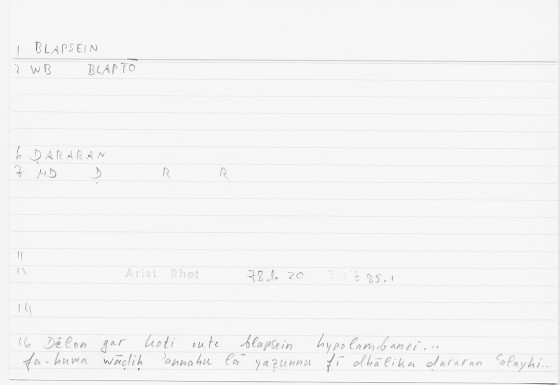 1 BLAPSEIN
2 WB BLAPTŌ
6 ḌARARAN
7 MD Ḍ R R
11
Arist Rhet 78b 20 85.1
14
16 Dēlon gar hoti oute blapsein hypolambanei...
fa-huwa wāḍiḥ ʾannahu lā yaẓunnu fī dhālika ḍararan ʿalayhi...